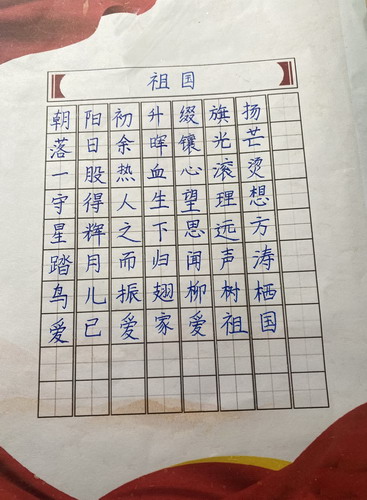 祖国
朝阳初升缀旗扬
落日余晖镶光芒
一股热血心滚烫
守得人生望理想
星辉之下思远方
踏月而归闻声涛
鸟儿振翅柳树栖
爱已爱家爱祖国